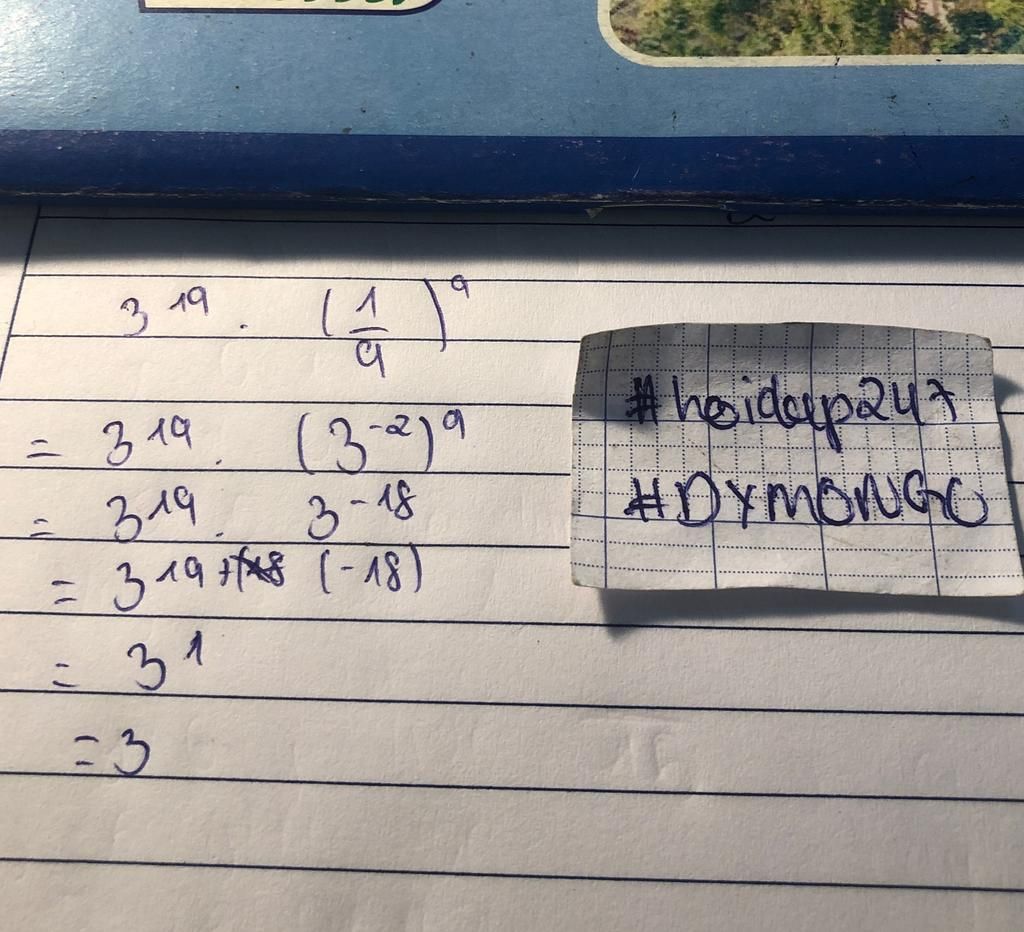 3^19 . (1/9)^9
= 3^19 . (3^-2)^9
= 3^19 . 3^-18
= 3^19 + (-18)
= 3^1
= 3
#hoidap247
#DYMONGO